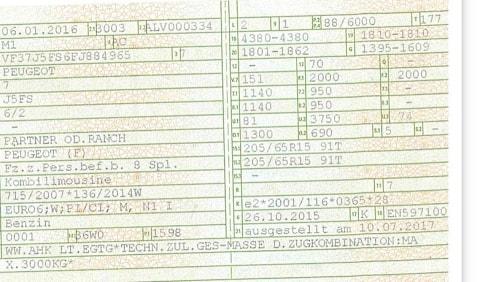 06.01.2016 3003 ALV000334
M1 AC
VF37J5FS6FJ884965 7
PEUGEOT
7
J5FS
6/2
–
PARTNER OD.RANCH
PEUGEOT (F)
Fz.z.Pers.bef.b. 8 Spl.
Kombilimousine
715/2007*136/2014W
EURO6;W;PI/CI; M, N1 I
Benzin
0001 36W0 1598
WW.AHK LT.EGTG*TECHN.ZUL.GES-MASSE D.ZUGKOMBINATION:MA
X.3000KG*
2 1 88/6000 177
4380-4380 1810-1810
1801-1862 1395-1609
– 70 –
151 2000 2000
1140 950 –
1140 950 –
81 3750 74
1300 690 5 –
205/65R15 91T
205/65R15 91T
–
7
e2*2001/116*0365*28
26.10.2015 K EN597100
ausgestellt am 10.07.2017